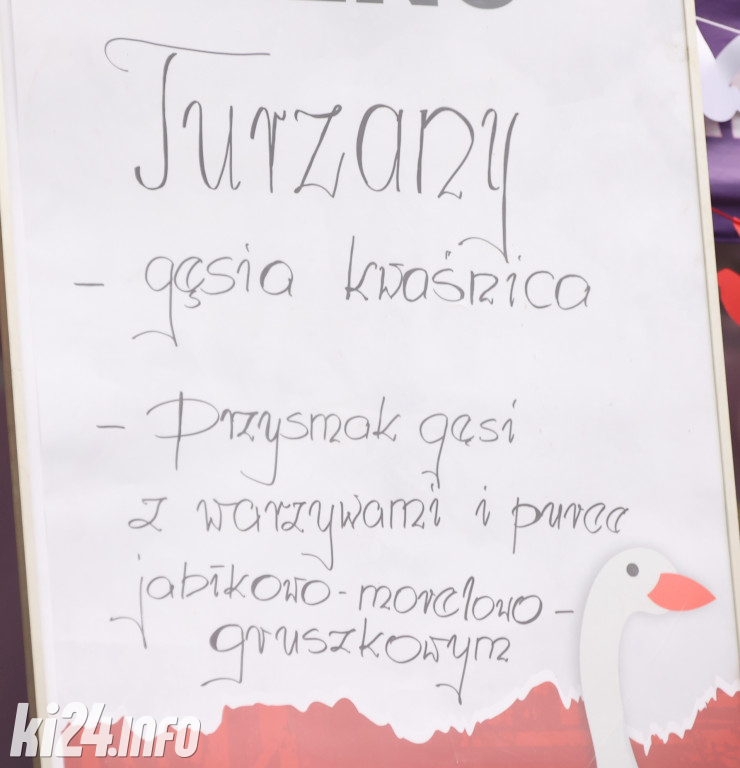 Turzany
- gęsia kwaśnica
- Przysmak gęsi
z warzywami i puree
jabłkowo-morelowo-
gruszkowym
ki24.info